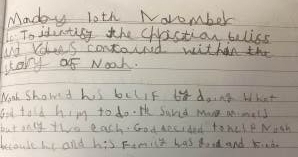 Monday 10th November
L. To identify the Christian beliss
and Values contained within the
story of Noah.
Noah showed his belif by doing what
God told him to do. He saved many animals
but only two each. God decided to help Noah
because he and his family was good and kind